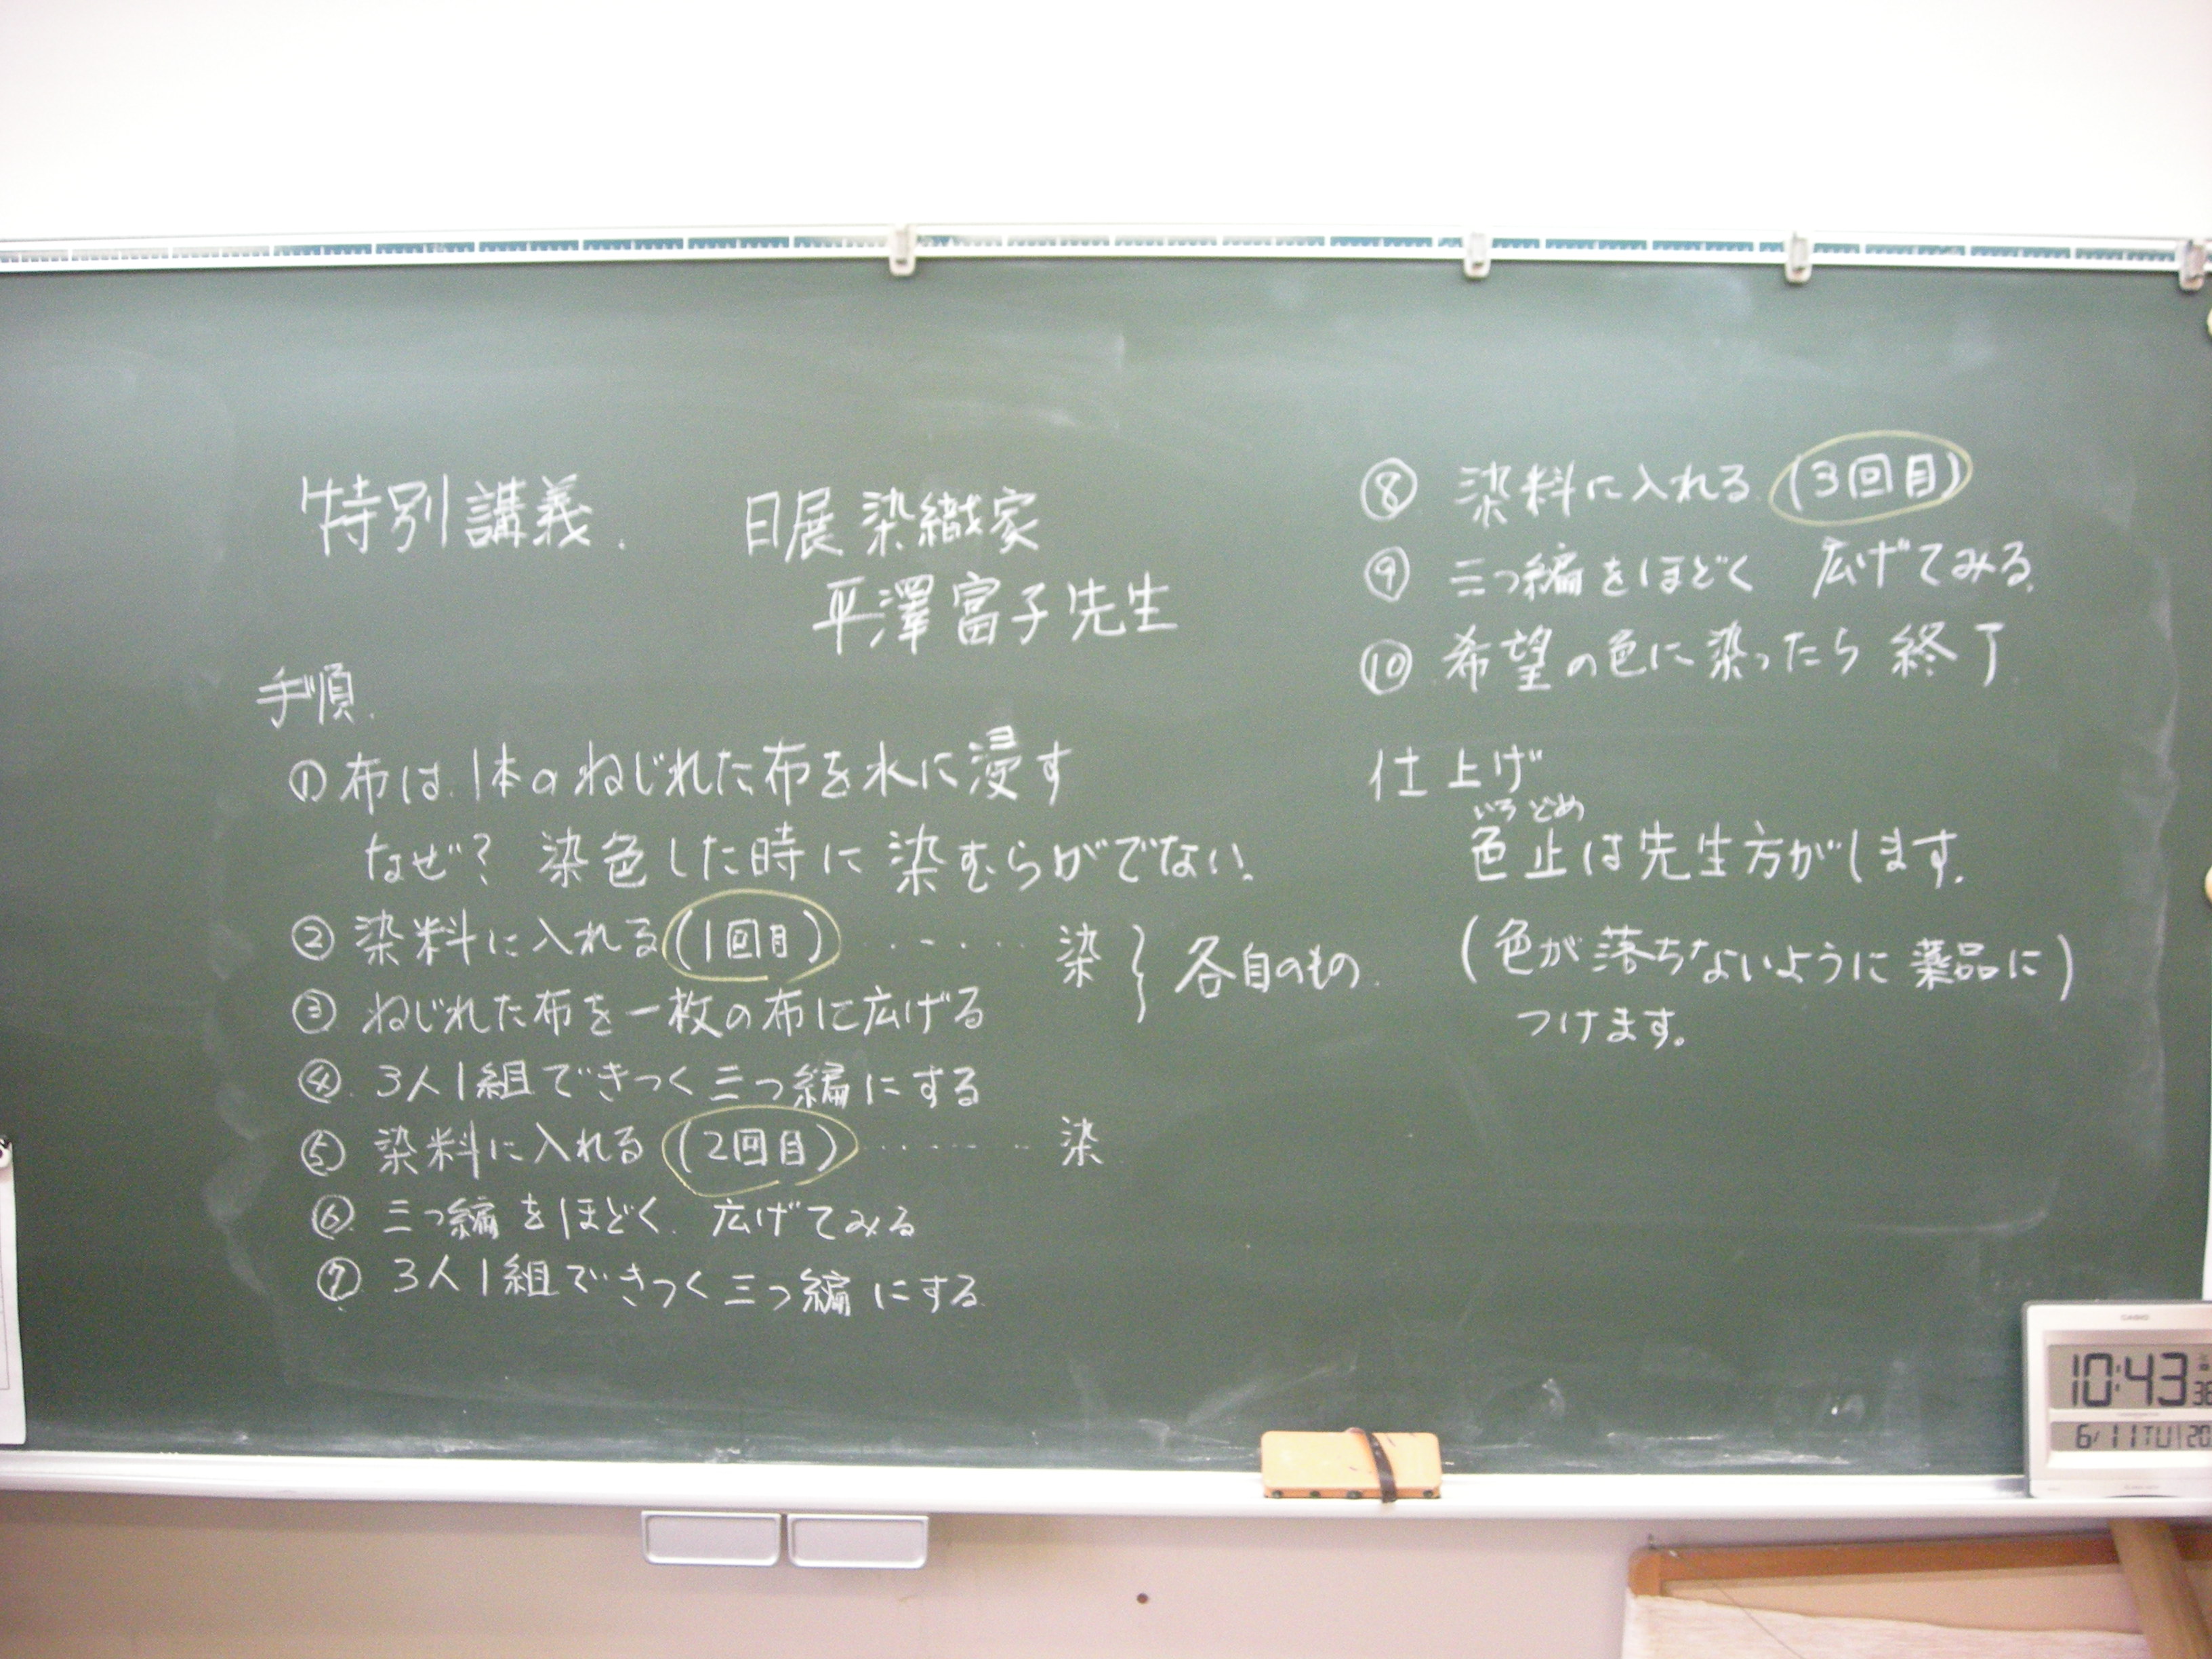 特別講義. 日展 染織家
平澤富子先生
手順.
①布は.1本のねじれた布を水に浸す
なぜ? 染色した時に染むらがでない.
②染料に入れる(1回目)・・・・・染 } 各自のもの.
③ねじれた布を一枚の布に広げる
④.3人1組できつく三つ編にする
⑤染料に入れる(2回目)・・・・・・染
⑥.三つ編をほどく.広げてみる
⑦3人1組できつく三つ編にする
⑧染料に入れる.(3回目)
⑨三つ編をほどく 広げてみる.
⑩希望の色に染ったら終了.
仕上げ
いろどめ
色止は先生方がします.
(色が落ちないように薬品に)
つけます。
CASIO
10:43 38
6/11TU 20